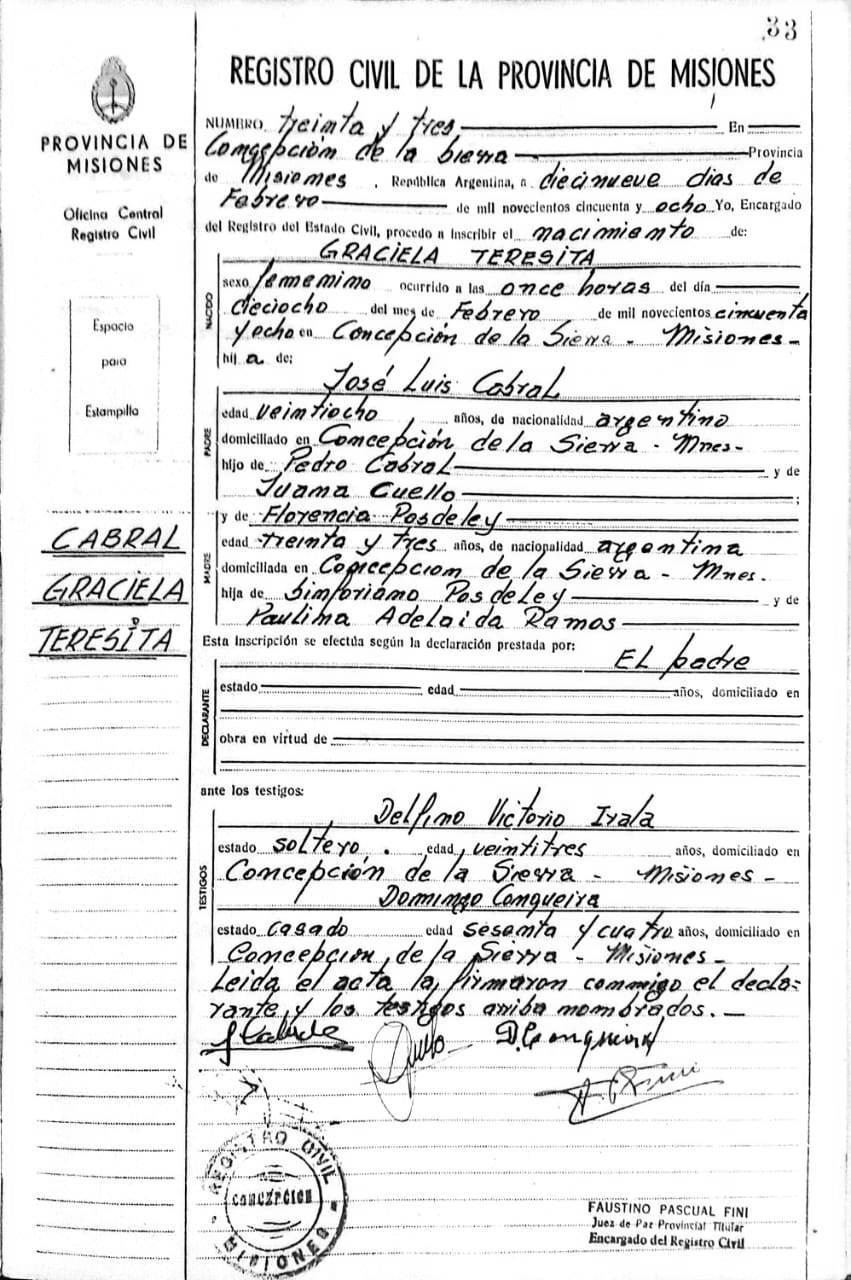 33
REGISTRO CIVIL DE LA PROVINCIA DE MISIONES
PROVINCIA DE
MISIONES
Oficina Central
Registro Civil
Espacio
para
Estampilla
CABRAL
GRACIELA
TERESITA
NUMERO treinta y tres En
Concepción de la Sierra Provincia
de Misiones . República Argentina, a diecinueve días de
Febrero de mil novecientos cincuenta y ocho Yo, Encargado
del Registro del Estado Civil, procedo a inscribir el nacimiento de:
GRACIELA TERESITA
NACIDO
sexo femenino ocurrido a las once horas del día
dieciocho del mes de Febrero de mil novecientos cincuenta
y ocho en Concepción de la Sierra - Misiones -
hij a de;
José Luis Cabral
PADRE
edad veintiocho años, de nacionalidad argentino
domiciliado en Concepción de la Sierra - Mnes-
hijo de Pedro Cabral y de
Juana Cuello ;
MADRE
y de Florencia Posdeley
edad treinta y tres años, de nacionalidad argentina
domiciliada en Concepcion de la Sierra - Mnes.
hija de Sinforiano Posdeley y de
Paulina Adelaida Ramos
Esta Inscripción se efectúa según la declaración prestada por:
El padre
DECLARANTE
estado edad años, domiciliado en
obra en virtud de
ante los testigos:
Delfino Victorio Irala
TESTIGOS
estado soltero . edad veintitres años, domiciliado en
Concepción de la Sierra - Misiones -
Domingo Conqueira
estado casado edad sesenta y cuatro años, domiciliado en
Concepción de la Sierra - Misiones -
Leida el acta la firmaron conmigo el decla-
rante y los testigos arriba nombrados. -
REGISTRO CIVIL
CONCEPCION
MISIONES
FAUSTINO PASCUAL FINI
Juez de Paz Provincial Titular
Encargado del Registro Civil